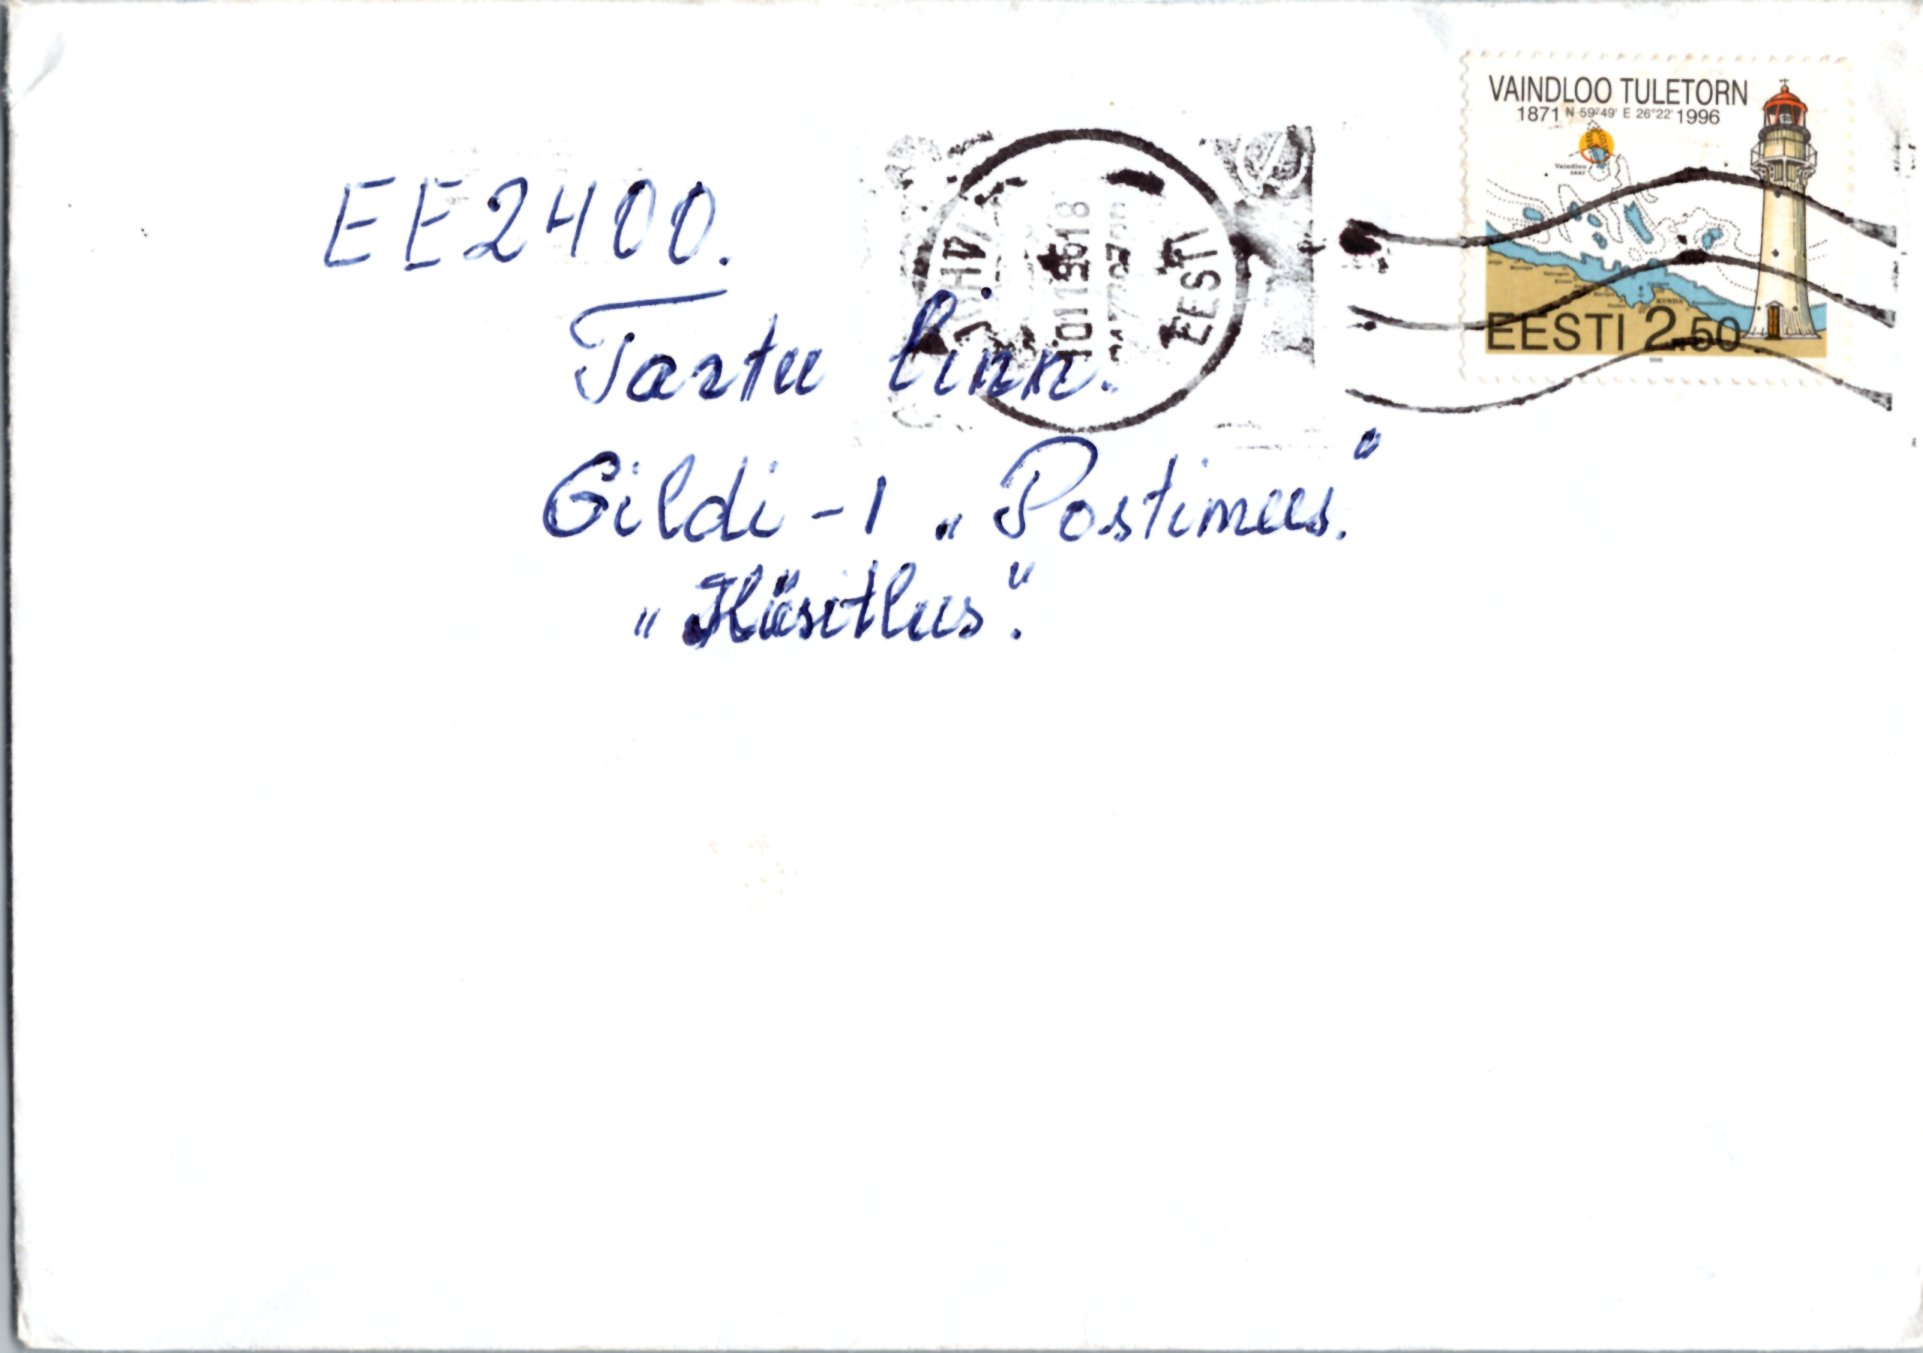 VAINDLOO TULETORN
1871 N 59°49' E 26°22' 1996
Vaindloo
saar
KUNDA
EESTI 2.50
1996
EESTI
EE2400.
Tartu linn.
Gildi-1 „Postimees."
„Küsitlus".